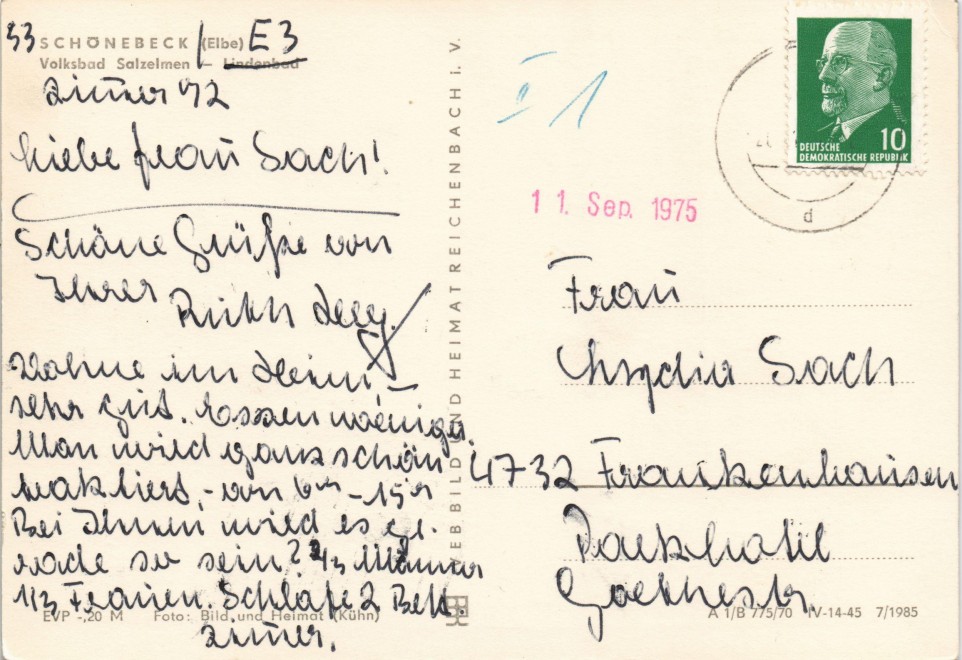 33 SCHÖNEBECK (Elbe) E3
Volksbad Salzelmen – Lindenbad
Zimer 42
Liebe Frau Sach!
Schöne Grüße von
Ihrer
Wohne im Heim –
sehr gut. Essen weniger.
Man wird ganz schön
traktiert, – von 6 – 15
Bei Ihnen wird es ge-
rade so sein? 2/3 Männer
1/3 Frauen. Schlafe 2 Bett.
Zimer.
EVP -,20 M Foto: Bild und Heimat (Kühn)
VEB BILD UND HEIMAT REICHENBACH I. V.
I 1
DEUTSCHE
DEMOKRATISCHE REPUBLIK
10
d
11. Sep. 1975
Frau
Lydia Sach
4732 Frankenhausen
Parkhotel
Goethestr.
A 1/B 775/70 IV-14-45 7/1985